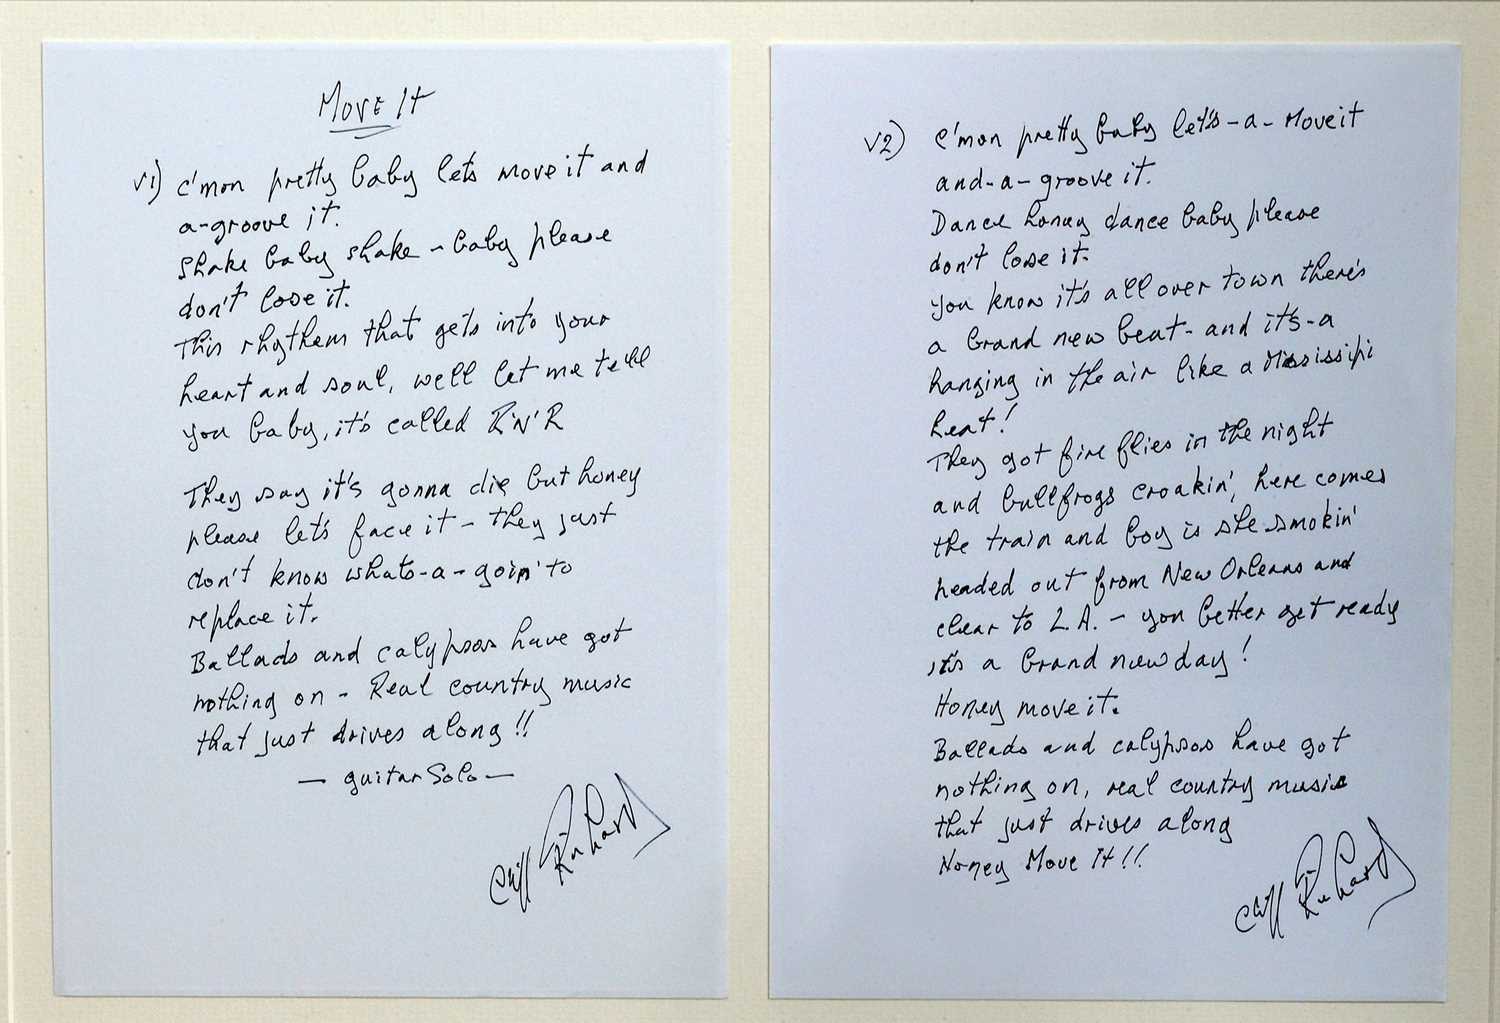 Move It
v1) C'mon pretty baby lets move it and
a-groove it.
Shake baby shake - baby please
don't lose it.
This rhythem that gets into your
heart and soul, well let me tell
you baby, it's called R'N'R
They say it's gonna die but honey
please let's face it - they just
don't know whats-a-goin' to
replace it.
Ballads and calypsos have got
nothing on - Real country music
that just drives along!!
- guitar Solo -
Cliff Richard
v2) C'mon pretty baby let's-a-Move it
and-a-groove it.
Dance honey dance baby please
don't lose it.
You know it's all over town there's
a brand new beat- and it's-a
hanging in the air like a Mississipi
heat!
They got fire flies in the night
and bullfrogs croakin', here comes
the train and boy is she smokin'
headed out from New Orleans and
clear to L.A. - you better get ready
it's a brand new day!
Honey move it.
Ballads and calypsos have got
nothing on, real country music
that just drives along
Honey Move It!!
Cliff Richard